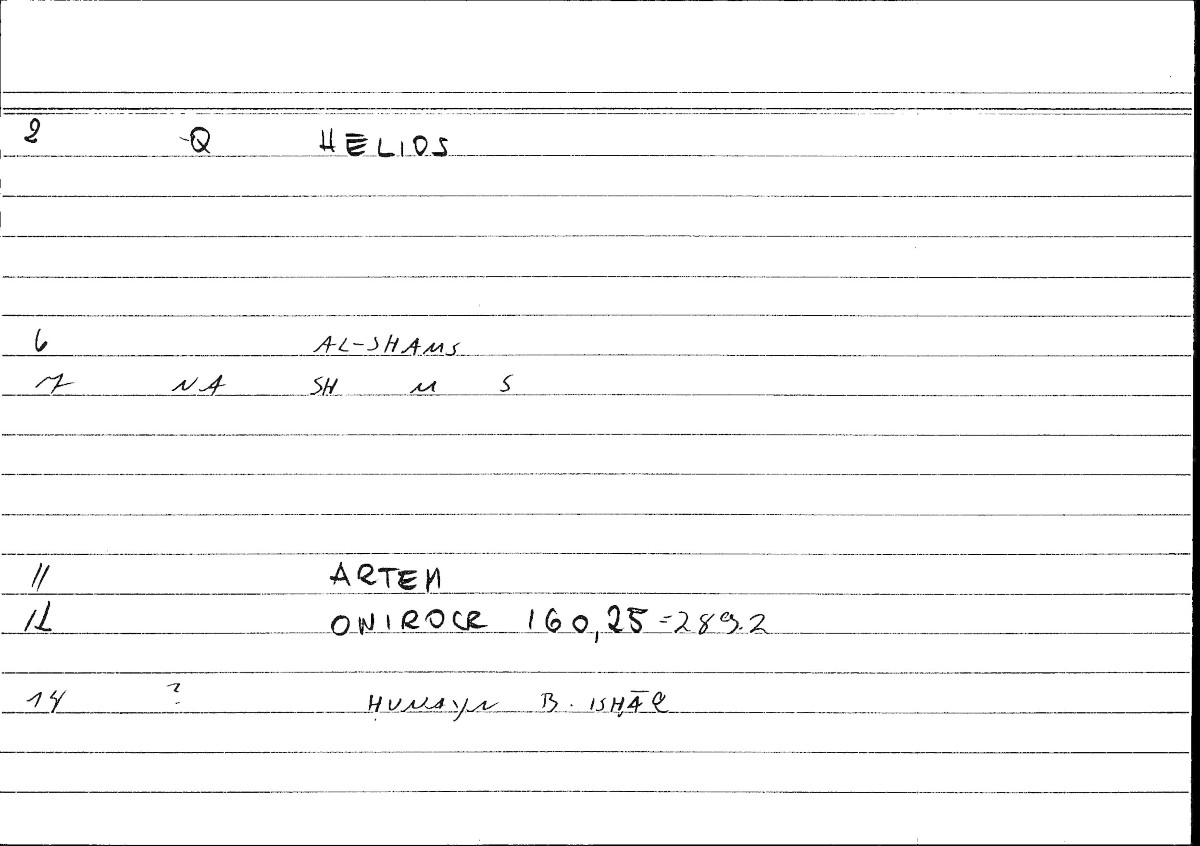 2 -Q HELIOS
6 AL-SHAMS
7 NA SH M S
11 ARTEM
12 ONIROCR 160,25 = 289.2
14 ? ḤUNAYN B. ISḤĀQ